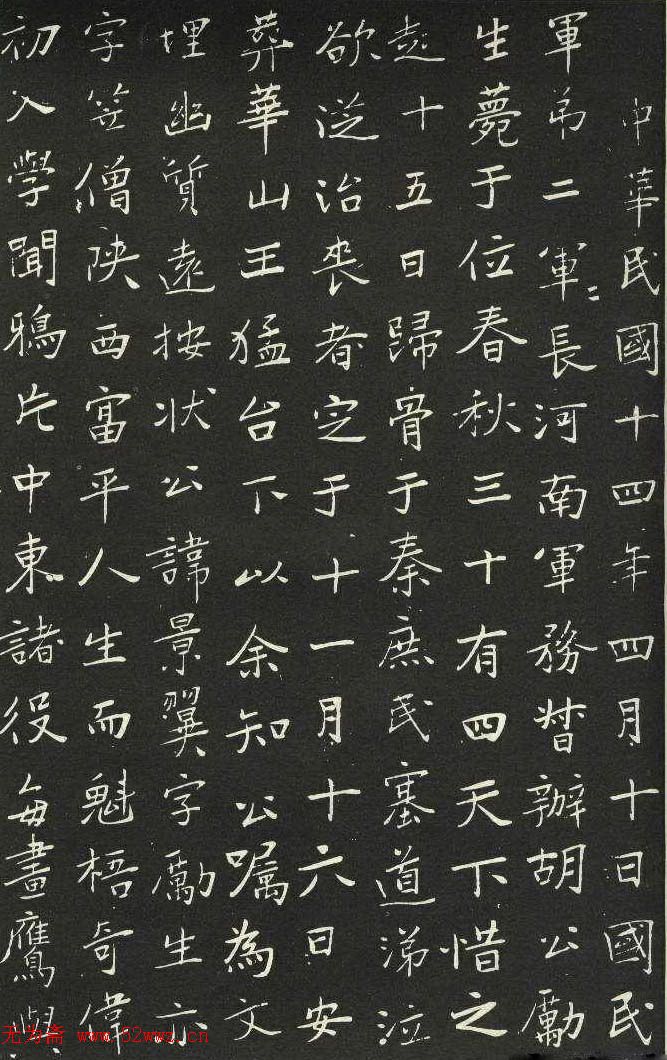 中華民國十四年四月十日國民
軍弟二軍〻長河南軍務督辦胡公勵
生薨于位春秋三十有四天下惜之
越十五日歸骨于秦庶民塞道涕泣
欲從治喪者定于十一月十六日安
葬華山王猛台下以余知公嘱為文
埋幽質遠按狀公諱景翼字勵生亦
字笠僧陕西富平人生而魁梧奇偉
初入學聞鴉片中東諸役每畫鷹與
无为斋 www.52wwz.cn